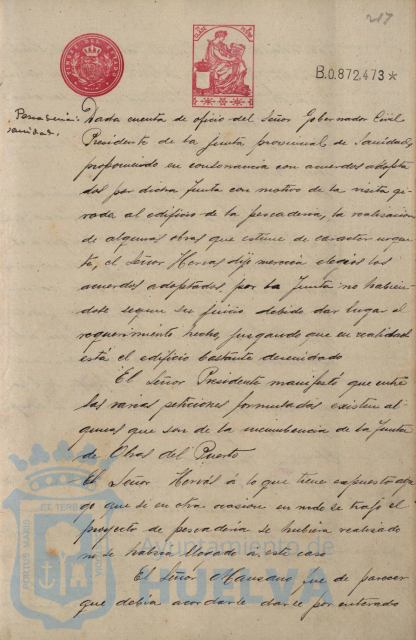 217
TIMBRE DEL ESTADO
B.0.872,473*
Pescaderia:
sanidad.
Dada cuenta de oficio del Señor Gobernador Civil
Presidente de la Junta provincial de Sanidad,
proponiendo en consonancia con acuerdos adopta
dos por dicha Junta con motivo de la visita gi-
rada al edificio de la pescaderia, la realizacion
de algunas obras que estima de caracter urgen
te, el Señor Hervas dijo merecia elogios los
acuerdos adoptados, por la Junta no habien-
dose segun su juicio debido dar lugar al
requerimiento hecho, juzgando que en realidad
está el edificio bastante descuidado
El Señor Presidente manifestó que entre
las varias peticiones formuladas existen al
gunas que son de la incumbencia de la Junta
de Obras del Puerto
El Señor Hervás á lo que tiene expuesto
que si en otra ocasion no se trajo el
proyecto de pescadería se hubiera realizado
no se habria llegado a este caso
El Señor Manzano fue de parecer
que debia acordarse darse por enterado
PORTUS MARIS ET TERRAE
Ayuntamiento de
HUELVA